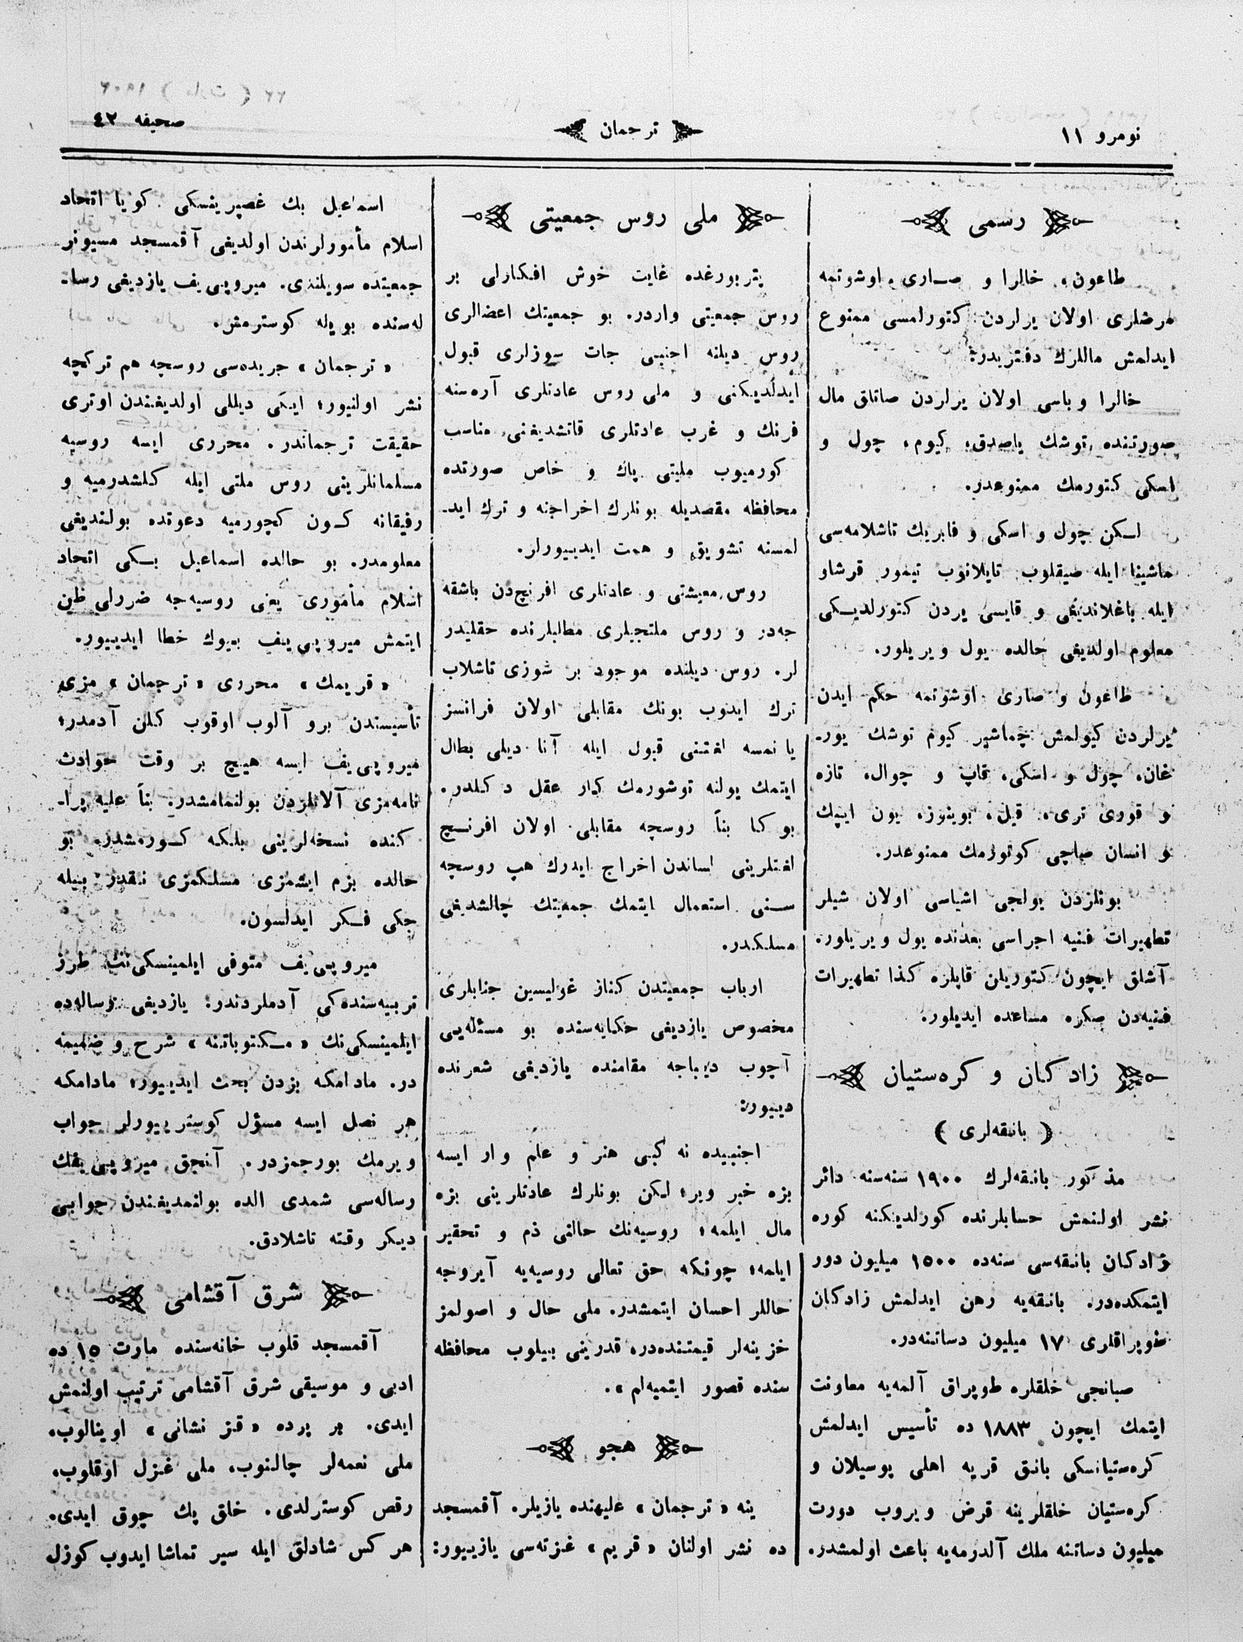 نومرو ١١
ترجمان
صحيفه ٤٢
رسمی
طاعون، خالرا و صاری اوشوتمه
مرضلری اولان يرلردن كتورلمسی ممنوع
ايدلمش ماللرك دفتريدر:
خالرا وباسی اولان يرلردن صاتلق مال
صورتنده توشك ياصدق، كيوم، چول و
اسكی كتورمك ممنوعدر.
لكن چول و اسكی و فابريك تاشلامه‌سی
ماشينا ايله صيقلوب تايلانوب تيمور قرشاو
ايله باغلانديغی و قايسی يردن كتورلديكی
معلوم اولديغی حالده يول ويريلور.
طاعون و صاری اوشوتمه حكم ايدن
يرلردن كيولمش چماشير كيوم توشك يور-
غان، چول و اسكی، قاپ و چوال، تازه
و قوری تری، قيل، بوينوز، يون ايپك
و انسان صاچی كوتورمك ممنوعدر.
بونلردن يولجی اشياسی اولان شيلر
تطهيرات فنيه اجراسی بعدنده يول ويريلور.
آشلق ايچون كتوريلن قاپلره كذا تطهيرات
فنيه‌دن صكره مساعده ايديلور.
زادكان و كره‌ستيان
( بانقه‌لری )
مذكور بانقه‌لرك ١٩٠٠ سنه‌سنه دائر
نشر اولنمش حسابلرنده كورلديكنه كوره
زادكان بانقه‌سی سنه‌ده ١٥٠٠ ميليون دور
ايتمكده‌در. بانقه‌يه رهن ايدلمش زادكان
طوپراقلری ١٧ ميليون دساتنه‌در.
صبانجی خلقلره طوپراق آلمه‌يه معاونت
ايتمك ايچون ١٨٨٣ ده تأسيس ايدلمش
كره‌ستيانسكی بانق قريه اهلی پوسيلان و
كره‌ستيان خلقلرينه قرض ويروب دورت
ميليون دساتنه ملك آلدرمه‌يه باعث اولمشدر.
ملی روس جمعيتی
پتربورغده غايت خوش افكارلی بر
روس جمعيتی واردر. بو جمعيتك اعضالری
روس ديلنه اجنبی جات سوزلری قبول
ايدلديكنی و ملی روس عادتلری آره‌سنه
فرنك و غرب عادتلری قاتشديغنی مناسب
كورميوب مليتی پاك و خاص صورتده
محافظه مقصديله بونلرك اخراجنه و ترك ايد-
لمسنه تشويق و همت ايدييورلر.
روس معيشتی و عادتلری افرنج‌دن باشقه
جه‌در و روس ملتجيلری مطلبلرنده حقليدر
لر. روس ديلنده موجود بر سوزی تاشلاب
ترك ايدوب بونك مقابلی اولان فرانسز
يا نمسه لغتنی قبول ايله آنا ديلی بطال
ايتمك يولنه توشورمك كار عقل دكلدر.
بوكا بناً روسچه مقابلی اولان افرنج
لغتلرينی لساندن اخراج ايدرك هپ روسچه
سنی استعمال ايتمك جمعيتك چالشديغی
مسلكدر.
ارباب جمعيتدن كناز غوليسين جنابلری
مخصوص يازديغی حكايه‌سنده بو مسئله‌يی
آچوب ديباجه مقامنده يازديغی شعرنده
دييور:
اجنبيده نه كبی هنر و علم وار ايسه
بزه خبر وير؛ ليكن بونلرك عادتلرينی بزه
مال ايلمه؛ روسيه‌نك حالتی ذم و تحقير
ايلمه؛ چونكه حق تعالی روسيه‌يه آيروجه
حاللر احسان ايتمشدر. ملی حال و اصولمز
خزينه‌لر قيمتنده‌در، قدرينی بيلوب محافظه
سنده قصور ايتميه‌لم».
هجو
ينه «ترجمان» عليهنده يازيلر. آقمسجد
ده نشر اولنان «قريم» غزته‌سی يازييور:
اسمعيل بك غصپرينسكی كويا اتحاد
اسلام مأمورلرندن اولديغی آقمسجد مسيونر
جمعيتده سويلندی. ميروپی‌يف يازديغی رسا-
له‌سنده بويله كوسترمش.
«ترجمان» جريده‌سی روسچه هم تركچه
نشر اولنيور؛ ايكی ديللی اولديغندن اوتری
حقيقت ترجماندر. محرری ايسه روسيه
مسلمانلرينی روس ملتی ايله كلشدرميه و
رفيقانه كون كچورميه دعوتده بولنديغی
معلومدر. بو حالده اسماعيل بكی اتحاد
اسلام مأموری يعنی روسيه‌جه ضررلی ظن
ايتمش ميروپی‌يف بيوك خطا ايدييور.
«قريمك» محرری «ترجمان» مزی
تأسيسندن برو آلوب اوقوب كلن آدمدر؛
ميروپی‌يف ايسه هيچ بر وقت حوادث
نامه‌مزی آلانلردن بولنمامشدر. بناً عليه پرا-
كنده نسخه‌لرينی بلكه كورمشدر. بو
حالده بزم ايشمزی مسلكمزی نقدر بيله
جكی فكر ايدلسون.
ميروپی‌يف متوفی ايلمينسكی‌نك طرز
تربيه‌سنده‌كی آدملردندر؛ يازديغی رساله‌ده
ايلمينسكی‌نك «مكتوباتنه» شرح و ضميمه
در. مادامكه بزدن بحث ايدييور؛ مادامكه
هر نصل ايسه مسؤل كوستريورلر جواب
ويرمك بورجمزدر. آنجق ميروپی‌يفك
رساله‌سی شمدی الده بولنمديغندن جوابی
ديكر وقته تاشلادق.
شرق آقشامی
آقمسجد قلوب خانه‌سنده مارت ١٥ ده
ادبی و موسيقی شرق آقشامی ترتيب اولنمش
ايدی. بر پرده «قز نشانی» اوينالوب،
ملی نغمه‌لر چالنوب، ملی غزل اوقلوب،
رقص كوسترلدی. خلق پك چوق ايدی.
هر كس شادلق ايله سير تماشا ايدوب كوزل